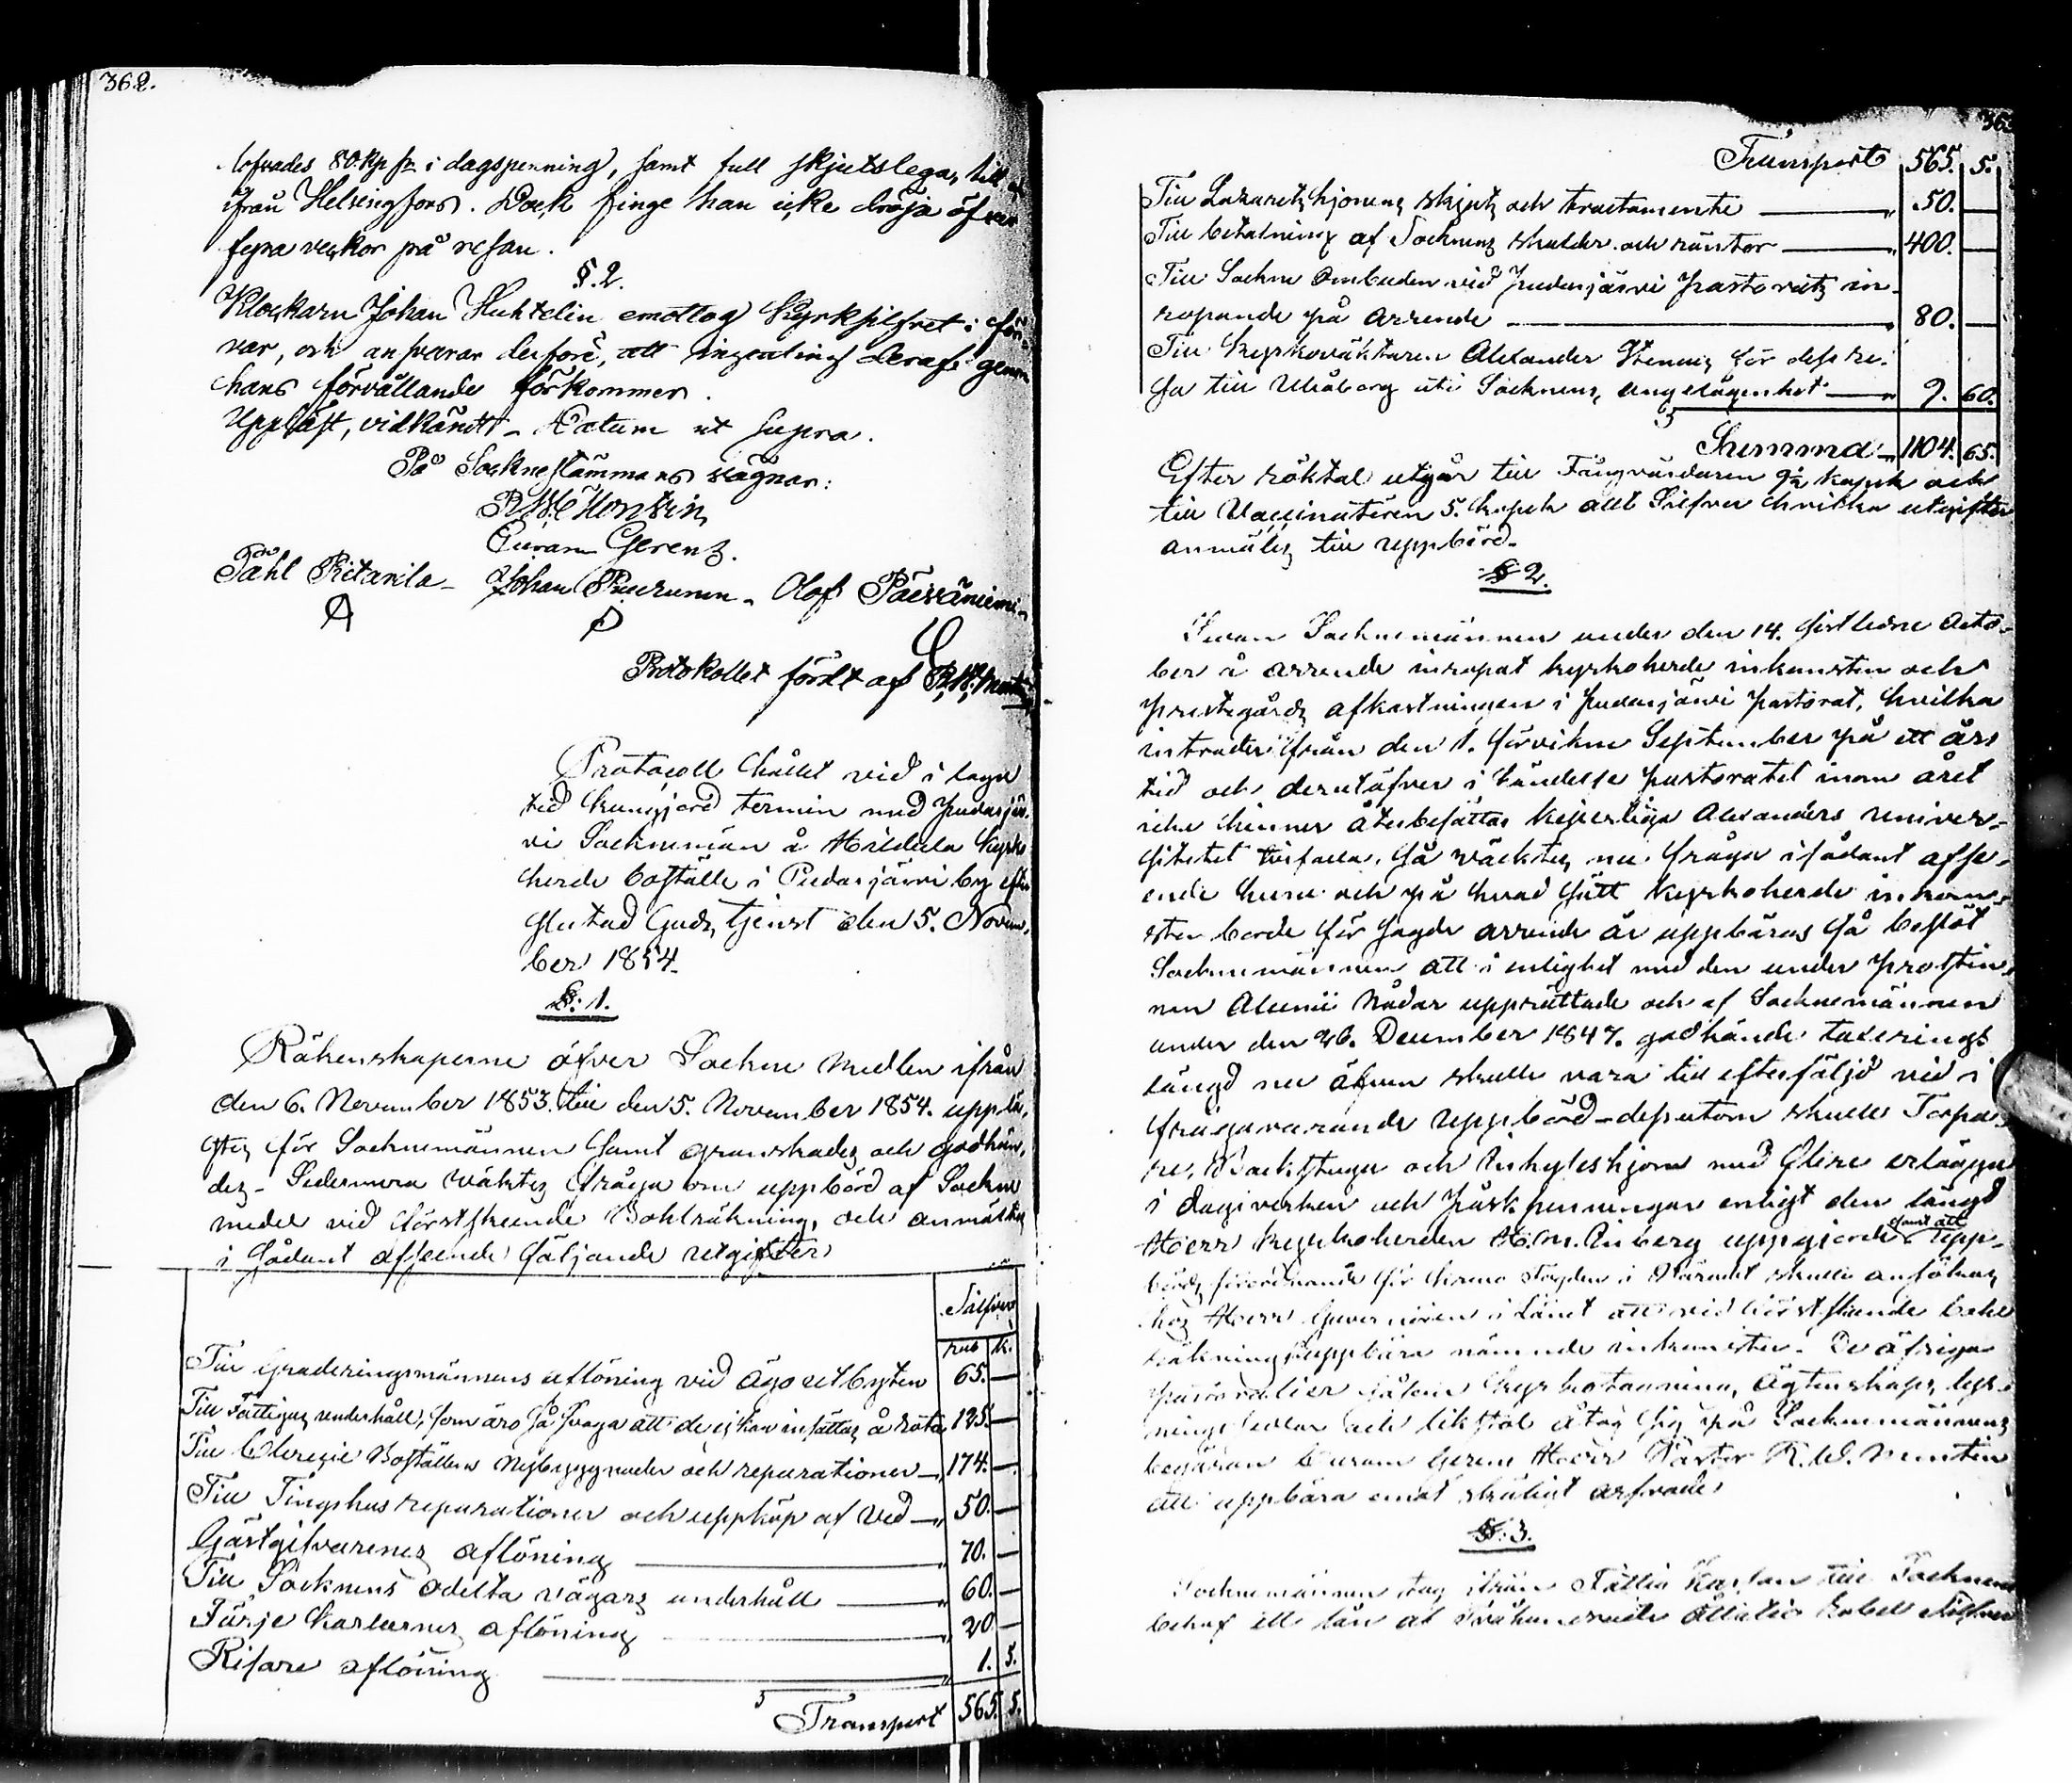 362.
lofvades 80 kp sr i dagspenning, samt full skjutslega, till o
ifrån Helsingfors. Dock finge han icke dröja öfver
fyra veckor på resan.
§. 2.
Klockarn Johan Huhtelin emottog Kyrksilfret i för-
var, och ansvarar derföre, att ingenting deraf genom
hans förvållande förkommer.
Uppläst, vidkändt. Datum ut supra.
På Sockne stämmans vägnar:
Curam Gerens.
Påhl Ritavila - Johan Puurunen - Olof Päiväniemi -
Protokollet fördt af R.W. Montin
Protocoll hållet vid i laga
tid kungjord termin med Pudasjär-
vi Socknemän å Hildula Kyrko
herde boställe i Pudasjärvi by efter
slutad Guds tjenst den 5. Novem-
ber 1854.
§: 1.
Räkenskaperne öfver Sockne medlen ifrån
den 6. November 1853. till den 5. November 1854. upplä-
stes för Socknemännen samt granskades och godkän-
des - Sedermera väktes fråga om uppbörd af Sockne
medel vid förstskeende Bohlräkning, och anmältes
i sådant afseende följande utgifter
Silfver
rub k.
Till Graderingsmännens aflöning vid Ägoutbyten 65. —
Till Fattigas underhåll, som äro så svaga att de ej kan insättas å rota 125. —
Till Cleresie Boställens Nybyggnader och reparationer — 174. —
Till Tingshus reparationer och uppköp af Ved — 50. —
Gästgifvarenes aflöning — 70. —
Till Socknens odelta vägars underhåll — 60. —
Färje karlarnes aflöning — 20. —
Risare aflöning — 1. 5.
Transport 565. 5.
36
Transport 565. 5.
Till Lazaretshjonens skjuts och tractamente — 50. —
Till betalning af Socknens skulder och räntor — 400. —
Till Sockne Ombuden vid Pudasjärvi Pastorats in-
ropande på arrende — 80. —
Till Kyrkovaktaren Alexander för dess re-
sa till Uleåborg uti Socknens angelägenhet — 9. 60.
Summa — 1104. 65.
Efter röktal utgår till Fångvårdaren 9½ kopek och
till Vaccinatören 5. kopek allt Silfver hvilka utgifter
anmäles till uppbörd.
§ 2.
Sedan Socknemännen under den 14. sistledne Octo-
ber å arrende inropat kyrkoherde inkomsten och
prestegårds afkastningen i Pudasjärvi Pastorat, hvilka
intrader ifrån den 1. förvikne September på ett års
tid och derutöfver i händelse pastoratet inom året
icke hinner återbesättas Kejserliga Alexanders univer-
sitetet tillfalla, så väcktes nu fråga i sådant afse-
ende huru och på hvad sätt kyrkoherde inkom-
sten borde för sagde arrende år uppbäras så beslöt
Socknemännen att i enlighet med den under Prostin-
nan Nådår upprättade och af Socknemännen
under den 26. December 1847. godkände taxerings
längd nu äfven skulle vara till efterföljd vid i
frågavarande uppbörd - desutom skulle Torpa-
re, Backstugu och Inhyseshjon med flere erlägga
i dagsverken och Påsk penningar enligt den längd
Herr Kyrkoherden uppgjorde samt att Upp-
börds förordnande för Krono fogden i Häradet skulle ansökas
hos Herr Guvernören i Länet att vid förstskeende bohl
räkning uppbära nämnde inkomster. De öfriga
pastoralier såsom Kyrkotagning, Ägtenskaps lys-
nings sedlar och likstol åtog sig på Socknemännens
begäran Curam Gerens Herr Pastor R. W. Montin
att uppbära emot skäligt arfvode.
§: 3.
Socknemännen tog ifrån Fattig Kassan till Socknens
behof ett lån af Rubel Silfver